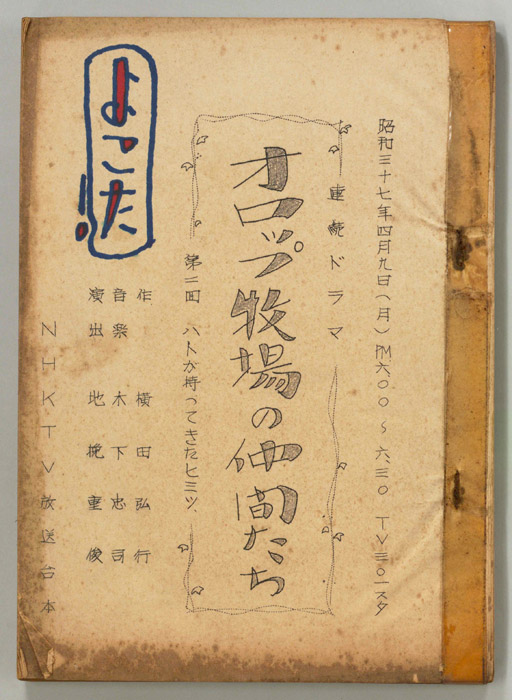 昭和三十七年四月九日(月) PM六〇〇〜六三〇 TV三〇一スタ
連続ドラマ
オロップ牧場の仲間たち
第二回 ハトが持ってきたヒミツ
作 横田弘行
音楽 木下忠司
演出 地挽重俊
NHKTV放送台本
よこた!